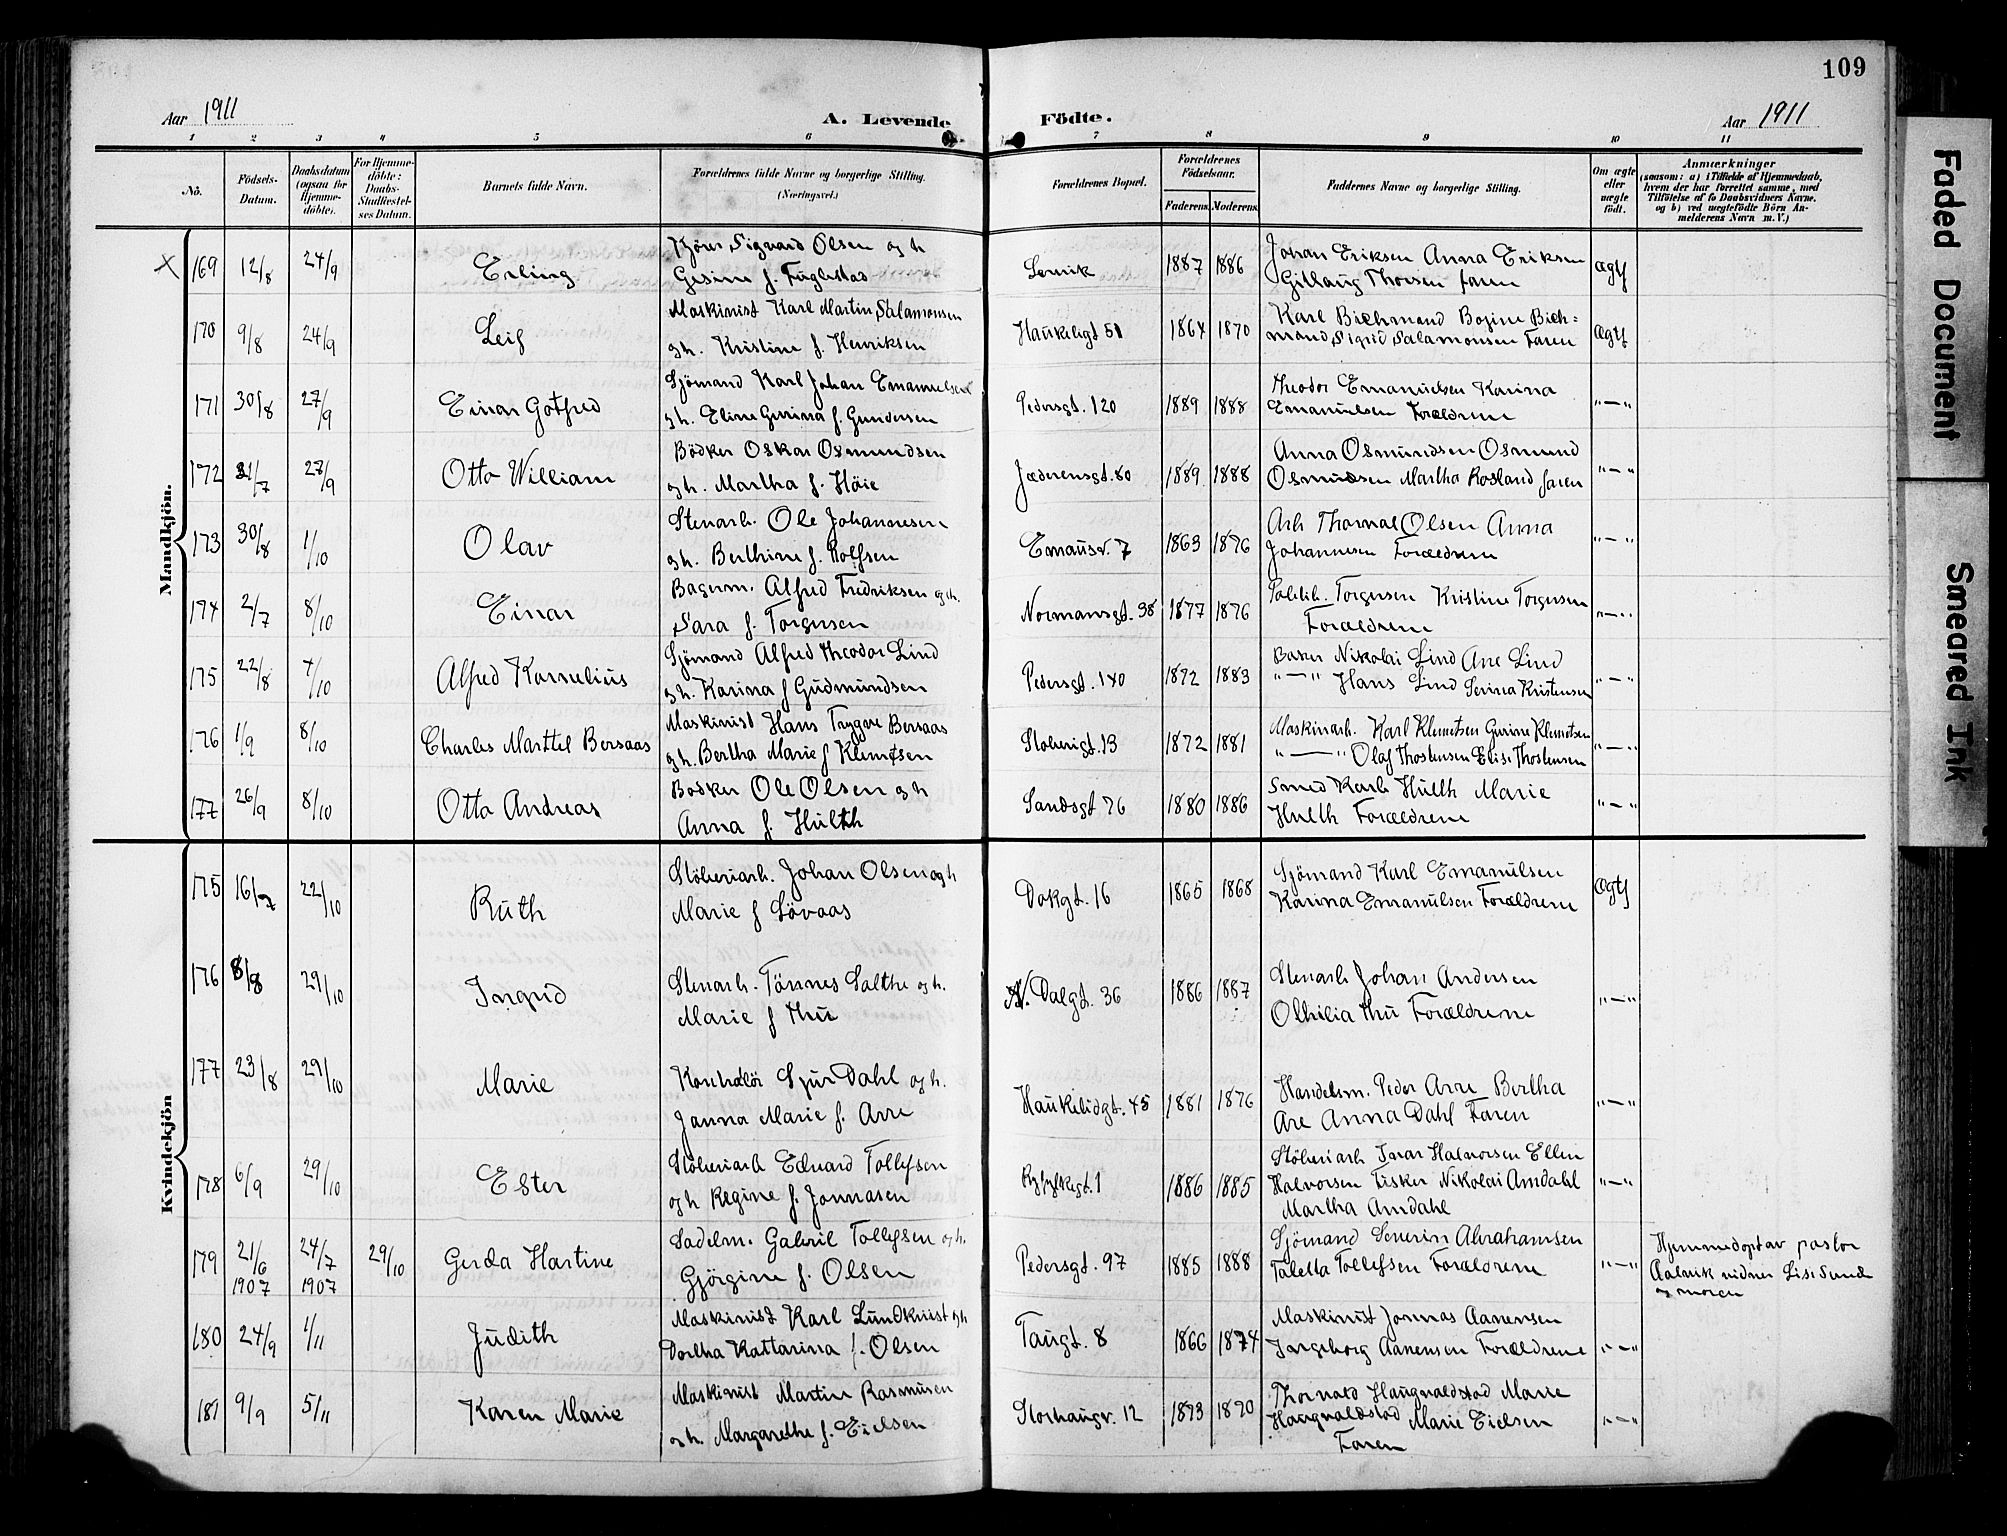 109
Aar 1911
A. Levende Födte.
Aar 1911
1 2 3 4 5 6 7 8 9 10 11
No.
Födsels-Datum.
Daabsdatum (ogsaa for Hjemme-döbte).
For Hjemme-döbte: Daabs-Stadfæstel-ses Datum.
Barnets fulde Navn.
Forældrenes fulde Navne og borgerlige Stilling. (Næringsvei.)
Forældrenes Bopæl.
Forældrenes Födselsaar.
Faderens. Moderens.
Faddernes Navne og borgerlige Stilling.
Om ægte eller uægte født.
Anmærkninger
(saasom: a) i Tilfælde af Hjemmedaab,
hvem der har forrettet samme, med
Tilföielse af to Daabsvidners Navne.
og b) ved uægtefödte Börn An-
melderens Navn m. V.)
Mandkjön.
X 169 12/8 24/9 Erling
Sigvard Olsen og h
Gesine f. Fuglestad
1887 1886
Johan Eriksen Anna Eriksen
Thorsen faren
ægtf
170 9/8 24/9 Leif
Maskinist Karl Martin Salamonsen
og h. Kristine f. Henriksen
Haukeligt 51 1864 1870
Karl Bichmand Bozine Bich=
mand Sigrid Salamonsen Faren
Ægtf
171 30/8 27/9 Einar Gotfred
Sjömand Karl Johan Emanuelsen
og h. Eline Gurina f. Gundersen
Pedersgt. 120 1889 1888
Theodor Emanuelsen Karina
Emanuelsen Forældrene
"—"
172 21/7 27/9 Otto William
Bödker Oskar Osmundsen
og h. Martha f. Höie
Jæderensgt. 80 1889 1888
Anna Osmundsen Osmund
Osmundsen Martha Rosland faren
"—"
173 30/8 1/10 Olav
Stenarb. Ole Johannesen
og h. Berthine f. Rolfsen
Emausv. 7 1863 1876
Arb Thorval Olsen Anna
Johannesen Forældrene
"—"
174 2/7 8/10 Einar
Bagerm. Alfred Fredriksen og h.
Sara f. Torgersen
Normansgt. 38 1877 1876
Politib. Torgersen Kristine Torgersen
Forældrene
"—"
175 22/8 7/10 Alfred Kornelius
Sjömand Alfred Theodor Lind
og h. Karina f Gudmundsen
Pedersgt. 140 1872 1883
Baker Nikolai Lind Ane Lind
"—" Hans Lind Serina Kristensen
"—"
176 1/9 8/10 Charles Marttel Bersaas
Maskinist Hans Taggare Bersaas
og h. Bertha Marie f Klemetsen
Stoberigt. 13 1872 1881
Maskinarb. Karl Klemetsen Gurine Klemetsen
"—" Olaf Thostensen Elise Thostensen
"—"
177 26/9 8/10 Otto Andreas
Bödker Ole Olsen og h
Anna f. Hulth
Sandsgt 76 1880 1886
Smed Karl Hulth Marie
Hulth Forældrene
"—"
Kvindekjön
175 16/7 22/10 Ruth
Stöberiarb. Johan Olsen og h
Marie f Lövaas
Dokgt. 16 1865 1868
Sjömand Karl Emanuelsen
Karina Emanulsen Forældrene
Ægtf
176 8/8 29/10 Ingrid
Stenarb. Tönnes Salthe og h.
Marie f Thu
N. Dalgt. 36 1886 1887
Stenarb Johan Andersen
Othilia Thu Forældrene
"—"
177 23/8 29/10 Marie
Kontrolör Sjur Dahl og h.
Janna Marie f. Arre
Haukelidgt. 45 1881 1876
Handelsm. Peder Arre Bertha
Are Anna Dahl Faren
"—"
178 6/9 29/10 Ester
Stöberiarb Edvard Tollefsen
og h Regine f. Jonnasen
Ryfylkegt. 1 1886 1885
Stöberiarb Ivar Halvorsen Ellen
Halvorsen Fisker Nikolai Amdahl
Martha Amdahl
"—"
179 21/6 1907 24/7 1907 29/10 Gerda Hartine
Sadelm. Gabriel Tollefsen og h.
Gjörgine f. Olsen
Pedersgt. 97 1885 1888
Sjömand Severin Abrahamsen
Taletta Tollefsen Forældrene
"—"
Hjemmedöpt av pastor
Aalvik vidner Lise Sunde
og moren
180 24/9 1/11 Judith
Maskinist Karl Lundkvist og h
Dorthea Kattarina f. Olsen
Taugt. 8 1866 1874
Maskinist Jonnas Aanensen
Ingeborg Aanensen Forældrene
"—"
181 9/9 5/11 Karen Marie
Maskinist Martin Rasmusen
og h. Margarethe f. Eielsen
Storhaugv. 12 1873 1870
Thorvald Haugvaldstad Marie
Haugvaldstad Marie Eielsen
Faren
"—"
Faded Document
Smeared Ink